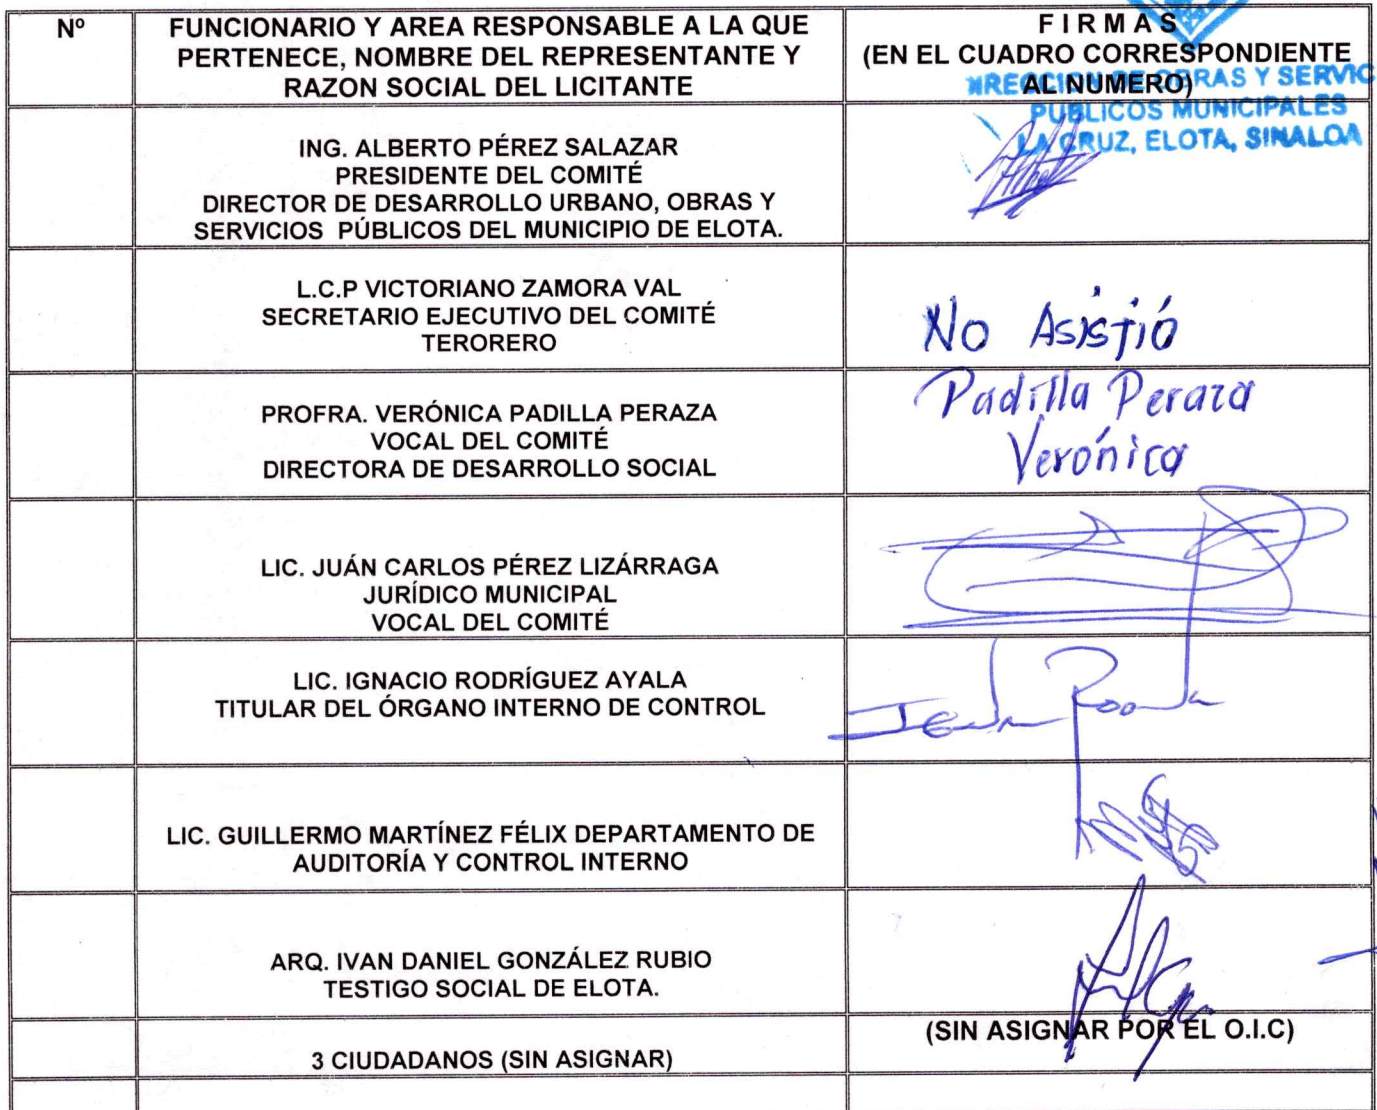 Nº
FUNCIONARIO Y AREA RESPONSABLE A LA QUE
PERTENECE, NOMBRE DEL REPRESENTANTE Y
RAZON SOCIAL DEL LICITANTE
F I R M A S
(EN EL CUADRO CORRESPONDIENTE
AL NUMERO)
OBRAS Y SERVIC
PUBLICOS MUNICIPALES
LA CRUZ, ELOTA, SINALOA
ING. ALBERTO PÉREZ SALAZAR
PRESIDENTE DEL COMITÉ
DIRECTOR DE DESARROLLO URBANO, OBRAS Y
SERVICIOS PÚBLICOS DEL MUNICIPIO DE ELOTA.
L.C.P VICTORIANO ZAMORA VAL
SECRETARIO EJECUTIVO DEL COMITÉ
TERORERO
No Asistió
PROFRA. VERÓNICA PADILLA PERAZA
VOCAL DEL COMITÉ
DIRECTORA DE DESARROLLO SOCIAL
Padilla Peraza
Verónica
LIC. JUÁN CARLOS PÉREZ LIZÁRRAGA
JURÍDICO MUNICIPAL
VOCAL DEL COMITÉ
LIC. IGNACIO RODRÍGUEZ AYALA
TITULAR DEL ÓRGANO INTERNO DE CONTROL
LIC. GUILLERMO MARTÍNEZ FÉLIX DEPARTAMENTO DE
AUDITORÍA Y CONTROL INTERNO
ARQ. IVAN DANIEL GONZÁLEZ RUBIO
TESTIGO SOCIAL DE ELOTA.
3 CIUDADANOS (SIN ASIGNAR)
(SIN ASIGNAR POR EL O.I.C)